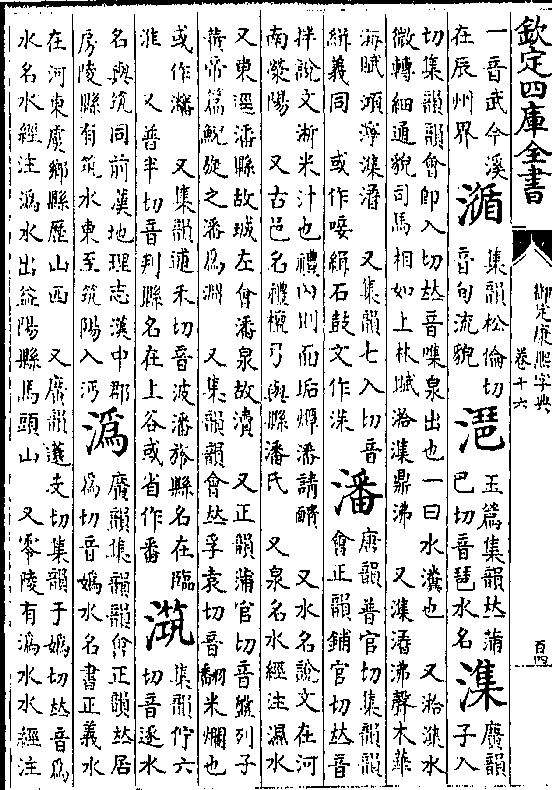 欽定四庫全書
御定康熙字典
卷十六
一音武今溪
在辰州界
㵌
集韻松倫切
音旬流貌
𣾴
玉篇集韻𠀤蒲
巴切音琶水名
潗
廣韻
子入
切集韻韻會卽入切𠀤音㗱泉出也一曰水濆也 又湁潗水
微轉細涌貌司馬相如上林賦湁潗鼎沸 又潗㴔沸聲木華
海賦㶖濘潗㴔 又集韻七入切音
緝義同 或作㗱緝石鼓文作㳧
潘
唐韻普官切集韻韻
會正韻鋪官切𠀤音
拌說文淅米汁也禮內則面垢燂潘請靧 又水名說文在河
南滎陽 又古邑名禮檀弓與縣潘氏 又泉名水經注濕水
又東逕潘縣故城左會潘泉故瀆 又正韻蒲官切音盤列子
黃帝篇鯢旋之潘爲淵 又集韻韻會𠀤孚袁切音翻米爛也
或作灊 又集韻逋禾切音波潘旍縣名在臨
淮 又普半切音判縣名在上谷或省作番
𣿉
集韻佇六
切音逐水
名與筑同前漢地理志漢中郡
房陵縣有筑水東至筑陽入沔
潙
廣韻集韻韻會正韻𠀤居
爲切音嬀水名書正義水
在河東虞鄉縣歷山西 又廣韻薳支切集韻于嬀切𠀤音爲
水名水經注潙水出益陽縣馬頭山 又零陵有潙水水經注